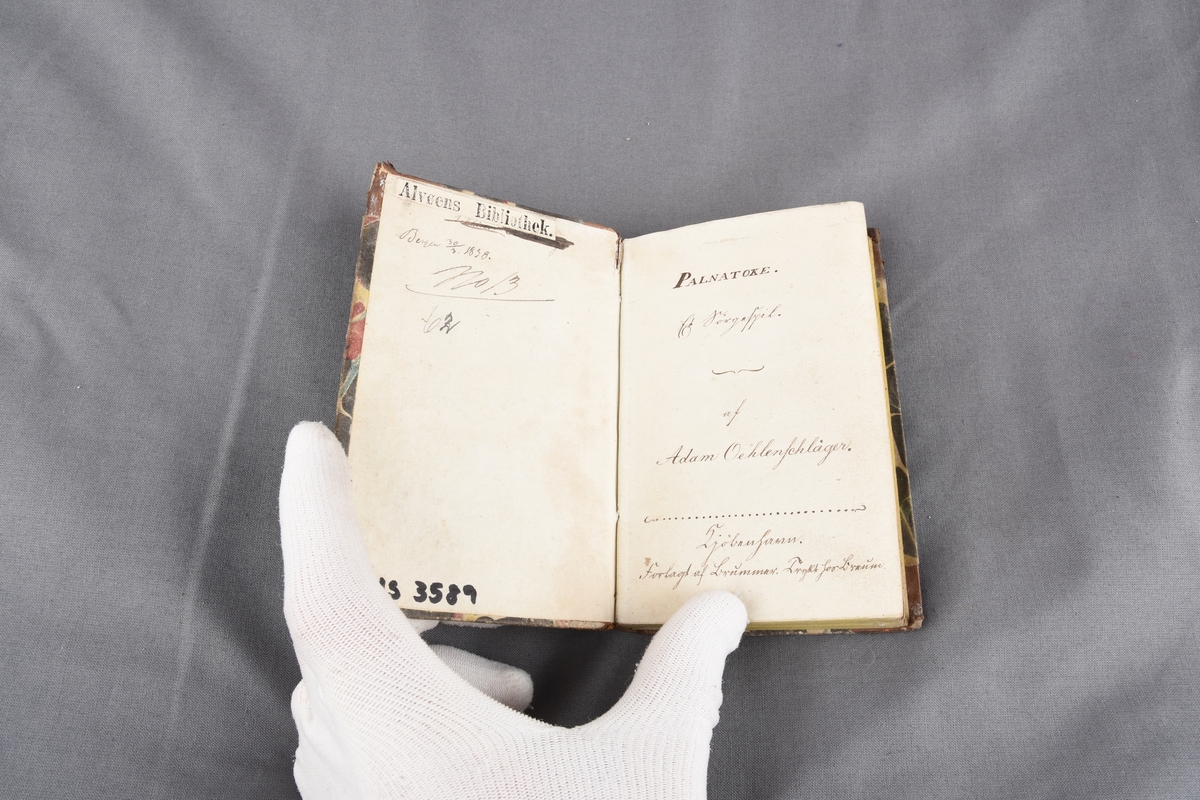 Alvøens Bibliothek.
Bergen 30/3. 1838.
No 13
62
S 3589
PALNATOKE.
Et Sörgespil.
af
Adam Oehlenschläger.
Kjöbenhavn.
Forlagt af Brummer. Trykt hos Breum